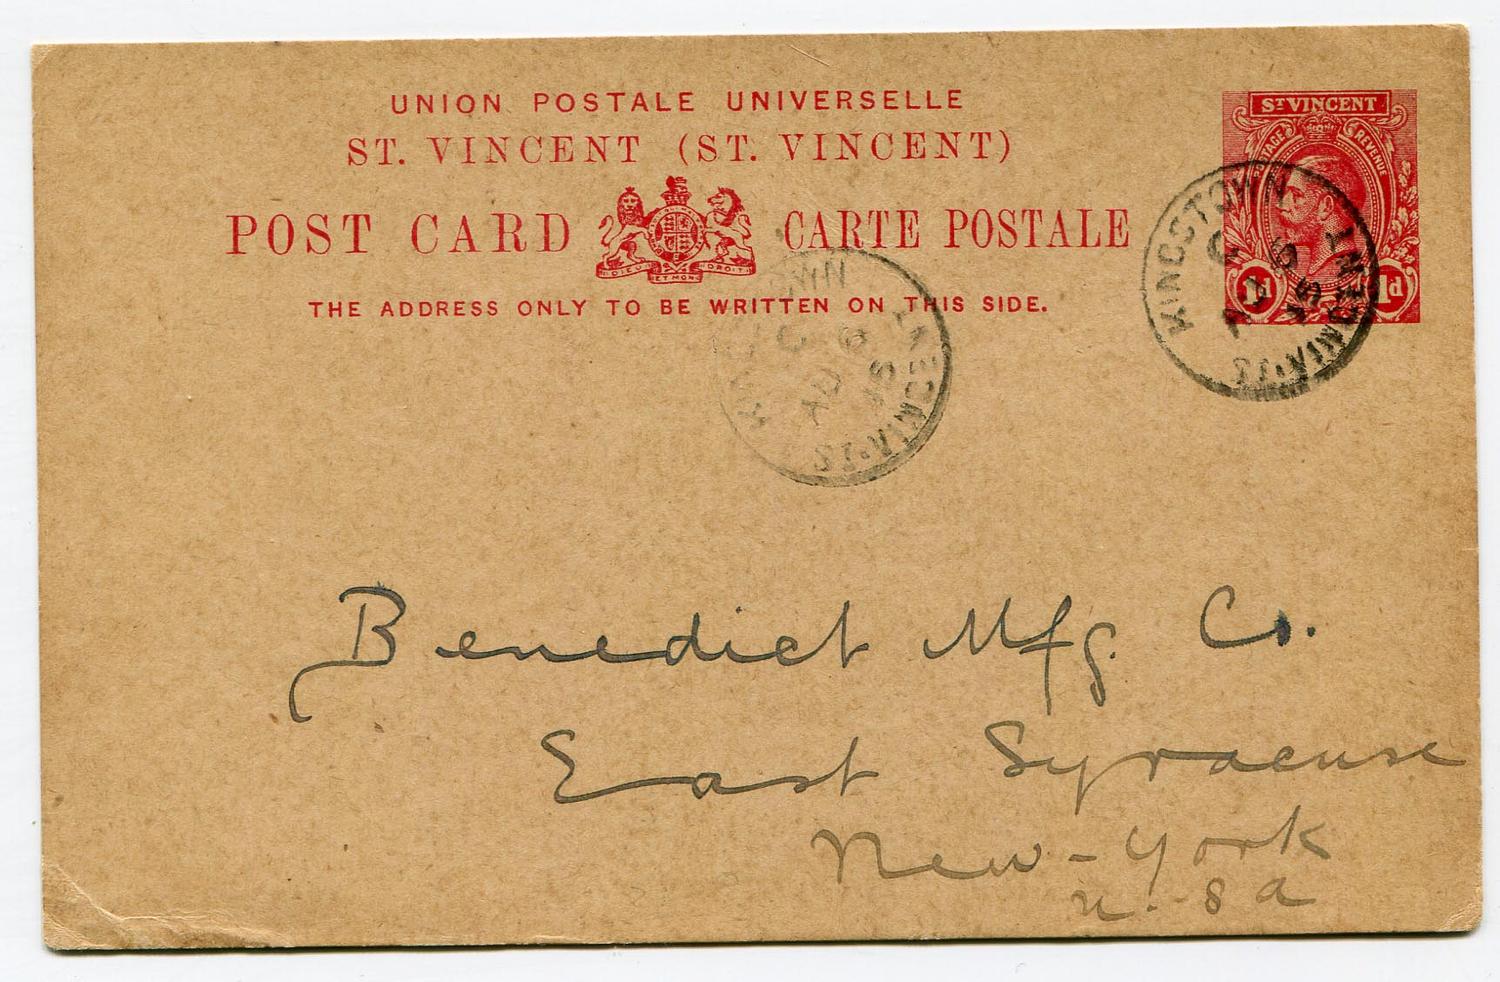 UNION POSTALE UNIVERSELLE
ST. VINCENT (ST. VINCENT)
POST CARD CARTE POSTALE
THE ADDRESS ONLY TO BE WRITTEN ON THIS SIDE.
ST VINCENT
POSTAGE REVENUE
1d 1d
KINGSTOWN
C
AU 6
15
ST. VINCENT
KINGSTOWN
C
AU 6
15
ST. VINCENT
DIEU ET MON DROIT
Benedict Mfg. Co.
East Syracuse
New-York
U. S A